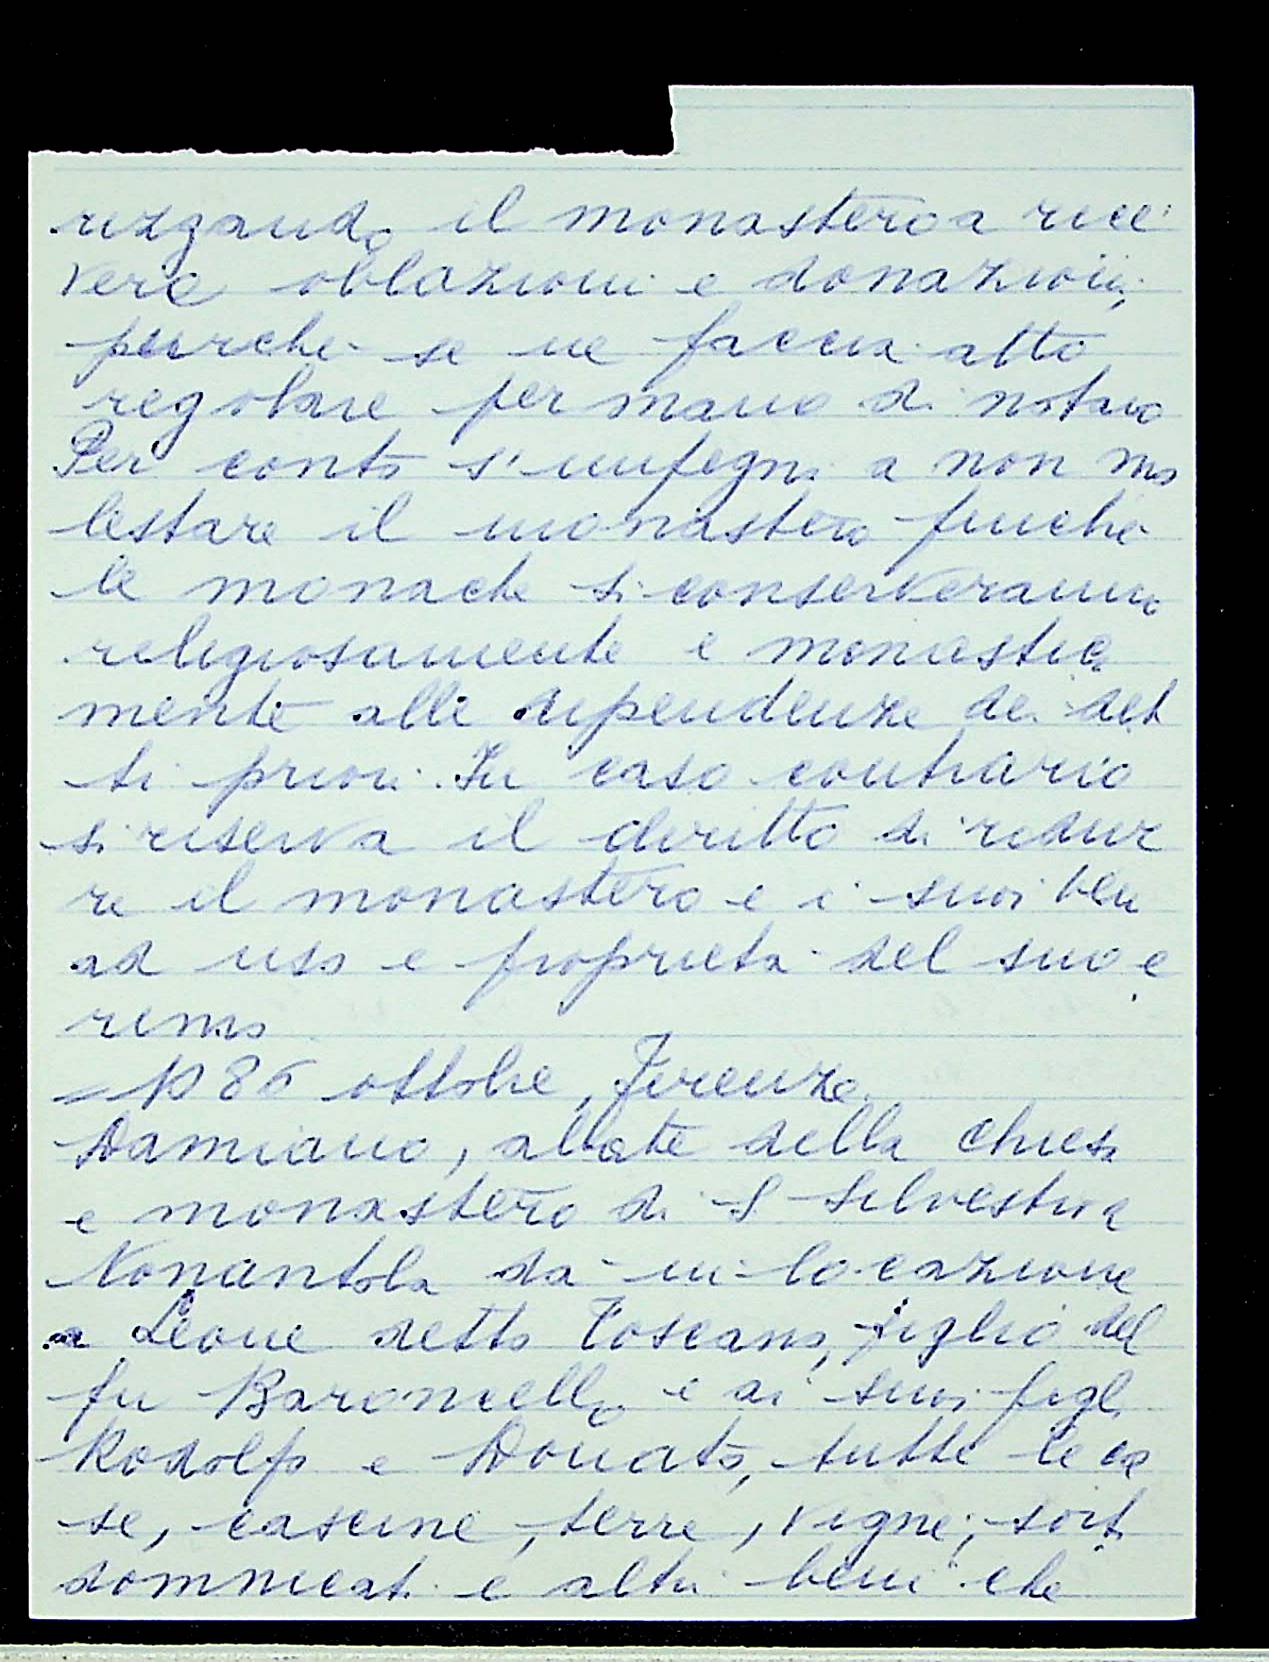 rizzando il monastero a rice
vere oblazioni e donazioni,
purché se ne faccia atto
regolare per mano di notaio
Per conto s'impegna a non mo
lestare il monastero finché
le monache si conserveranno
religiosamente e monastica
mente alle dipendenze dei det
ti priori. In caso contrario
si riserva il diritto di ridur
re il monastero e i suoi beni
ad uso e proprietà del suo e
remo
= 1086 ottobre, Firenze
Damiano, abate della chiesa
e monastero di S Silvestro a
Nonantola dà in locazione
a Leone detto Toscano, figlio del
fu Baroncello e ai suoi figli
Rodolfo e Donato, tutte le ca
se, cascine, terre, vigne, sorti
domnicati e altri beni che